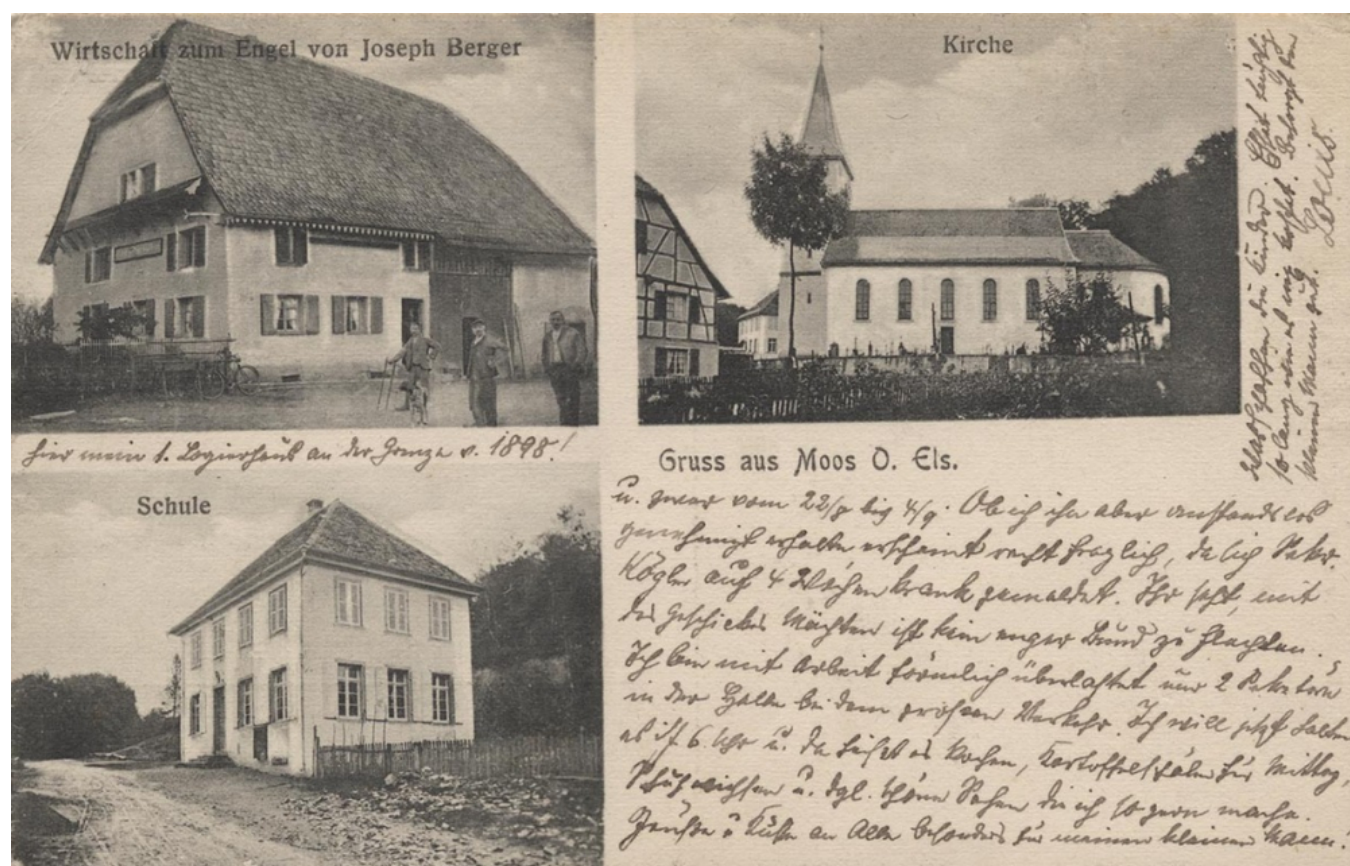 Wirtschaft zum Engel von Joseph Berger
Kirche
hier mein 1. Logierhaus an der Grenze v. 1898!
Schule
Gruss aus Moos O. Els.
u. zwar vom 22/8 bis 4/9. Ob ich ihn aber anstandslos
genehmigt erhalte erscheint recht fraglich, da sich Sekr.
Kögler auf 4 Wochen krank gemeldet. Ihr seht, mit
des Geschickes Mächten ist kein enger Bund zu flechten.
Ich bin mit Arbeit förmlich überlastet nur 2 Sekretäre
in der Halle bei dem großen Verkehr. Ich will jetzt
es ist 6 Uhr u. da heißt es Kochen, Kartoffelschälen für Mittag,
Schuhwichsen u. dgl. schöne Sachen die ich so gern mache.
Grüße u Küsse an Alle besonders für meinen kleinen Mann!
die Kinder. Eßt
so lang wie es
kleinen Mann gut. Louis.